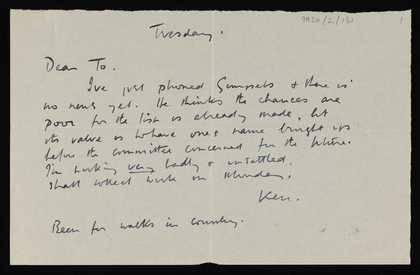 9920/2/131
1
Tuesday.
Dear To.
I've just phoned Gimpsels & there is
no news yet. He thinks the chances are
poor for the list is already made, but
its value is to have one's name brought up
before the committee concerned for the future.
I'm working very badly & unsettled.
Shall collect work on Monday.
Ken.
Been for walks in country.